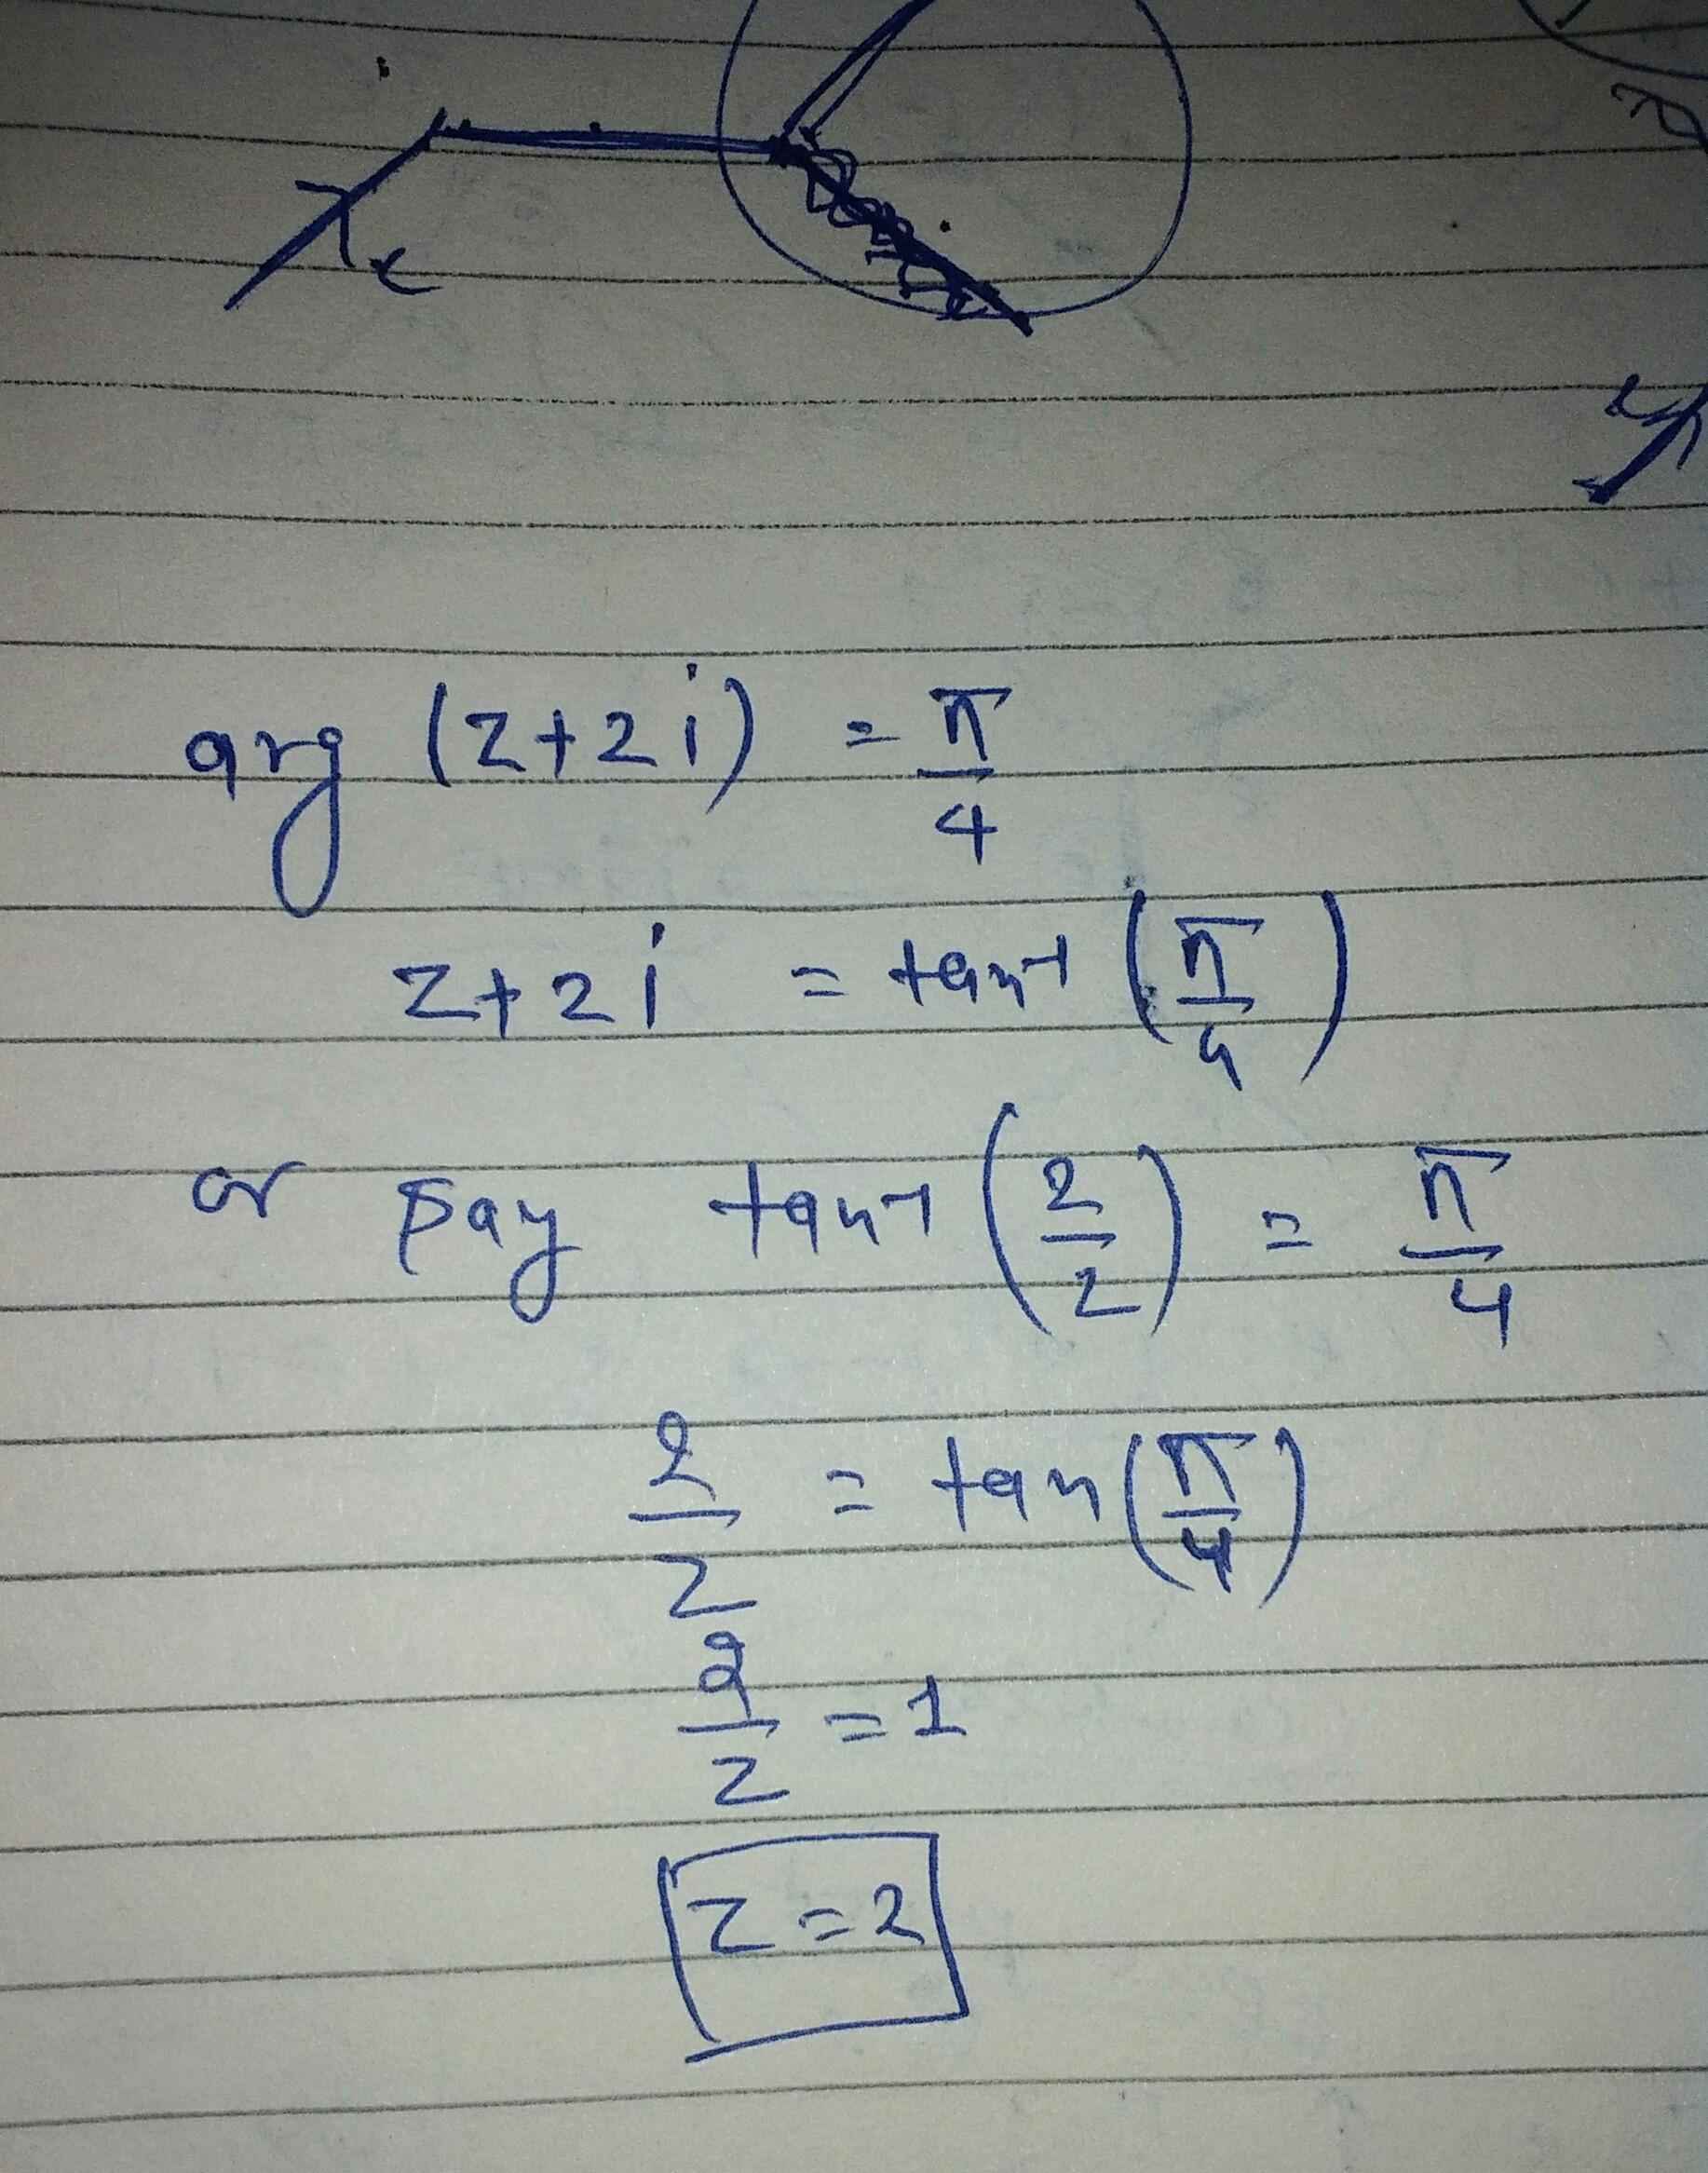 arg (z+2i) = π/4
z+2i = tan-1 (π/4)
or say tan-1 (2/z) = π/4
2/z = tan(π/4)
2/z = 1
z = 2